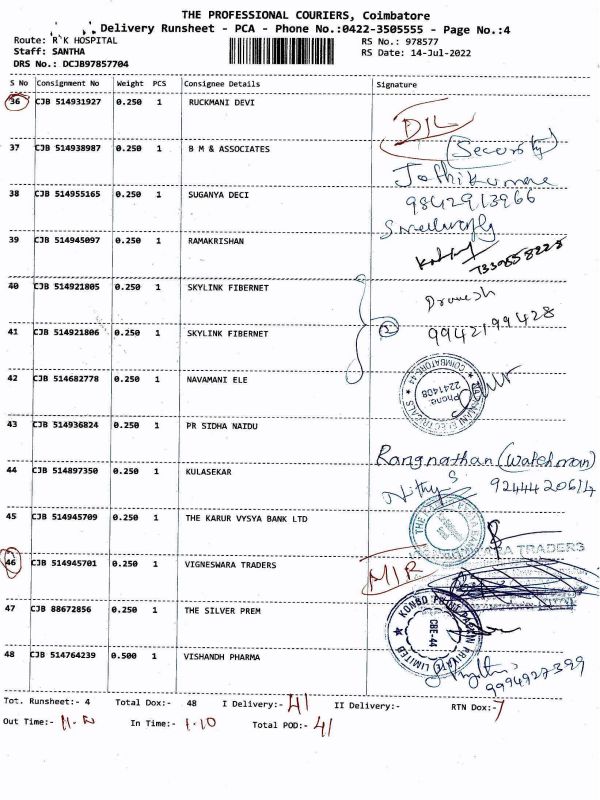 THE PROFESSIONAL COURIERS, Coimbatore
Delivery Runsheet - PCA - Phone No.:0422-3505555 - Page No.:4
Route: R K HOSPITAL RS No.: 978577
Staff: SANTHA RS Date: 14-Jul-2022
DRS No.: DCJB97857704
S No Consignment No Weight PCS Consignee Details Signature
36 CJB 514931927 0.250 1 RUCKMANI DEVI
D/L
37 CJB 514938987 0.250 1 B M & ASSOCIATES
(Security)
38 CJB 514955165 0.250 1 SUGANYA DECI
9842913966
39 CJB 514945097 0.250 1 RAMAKRISHAN
7339558225
40 CJB 514921805 0.250 1 SKYLINK FIBERNET
41 CJB 514921806 0.250 1 SKYLINK FIBERNET
2
9942199428
42 CJB 514682778 0.250 1 NAVAMANI ELE
COIMBATORE-44
Phone:
2241408
43 CJB 514936824 0.250 1 PR SIDHA NAIDU
Rangnathan (watchman)
44 CJB 514897350 0.250 1 KULASEKAR
45 CJB 514945709 0.250 1 THE KARUR VYSYA BANK LTD
TRADERS
46 CJB 514945701 0.250 1 VIGNESWARA TRADERS
47 CJB 88672856 0.250 1 THE SILVER PREM
PRIVATE LIMITED
CBE-44
48 CJB 514764239 0.500 1 VISHANDH PHARMA
9994927399
Tot. Runsheet:- 4 Total Dox:- 48 I Delivery:- 41 II Delivery:- RTN Dox:- 7
Out Time:- In Time:- 1.10 Total POD:- 41